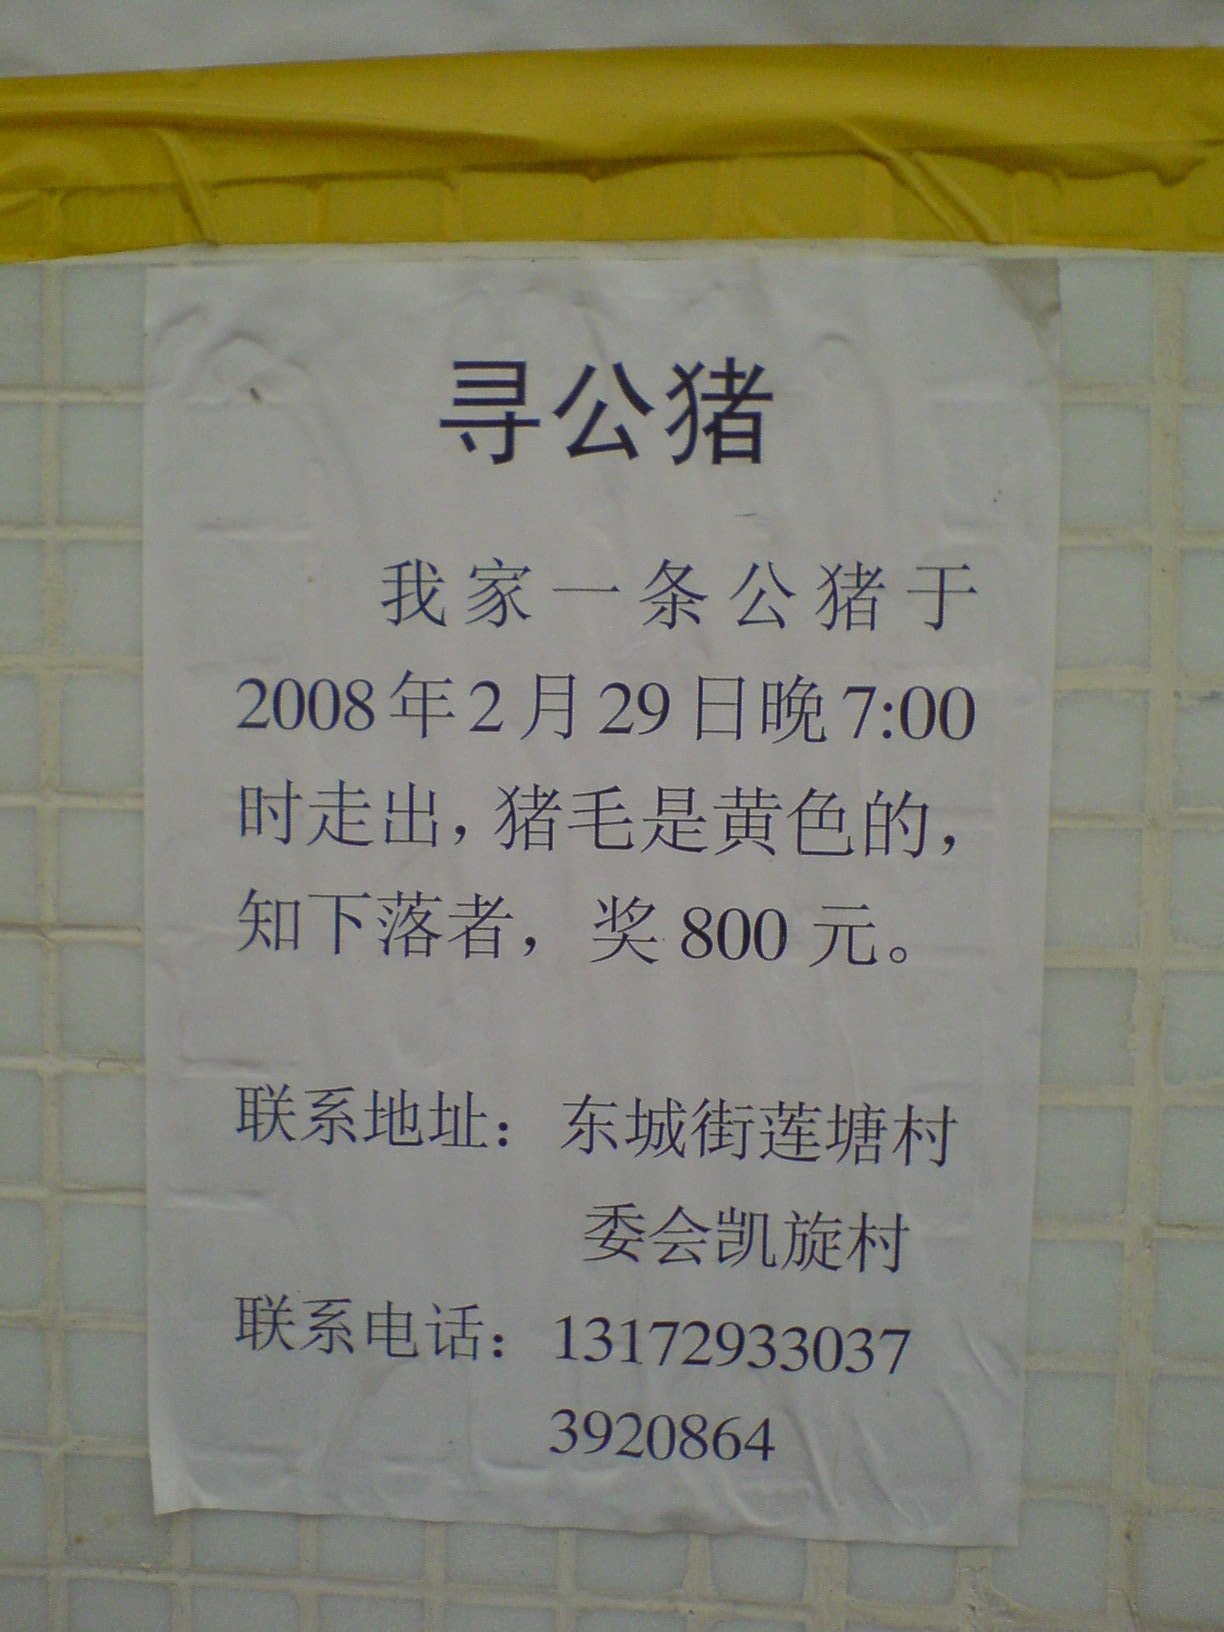 寻公猪
我家一条公猪于
2008年2月29日晚7:00
时走出，猪毛是黄色的，
知下落者，奖800元。
联系地址：东城街莲塘村
委会凯旋村
联系电话：13172933037
3920864